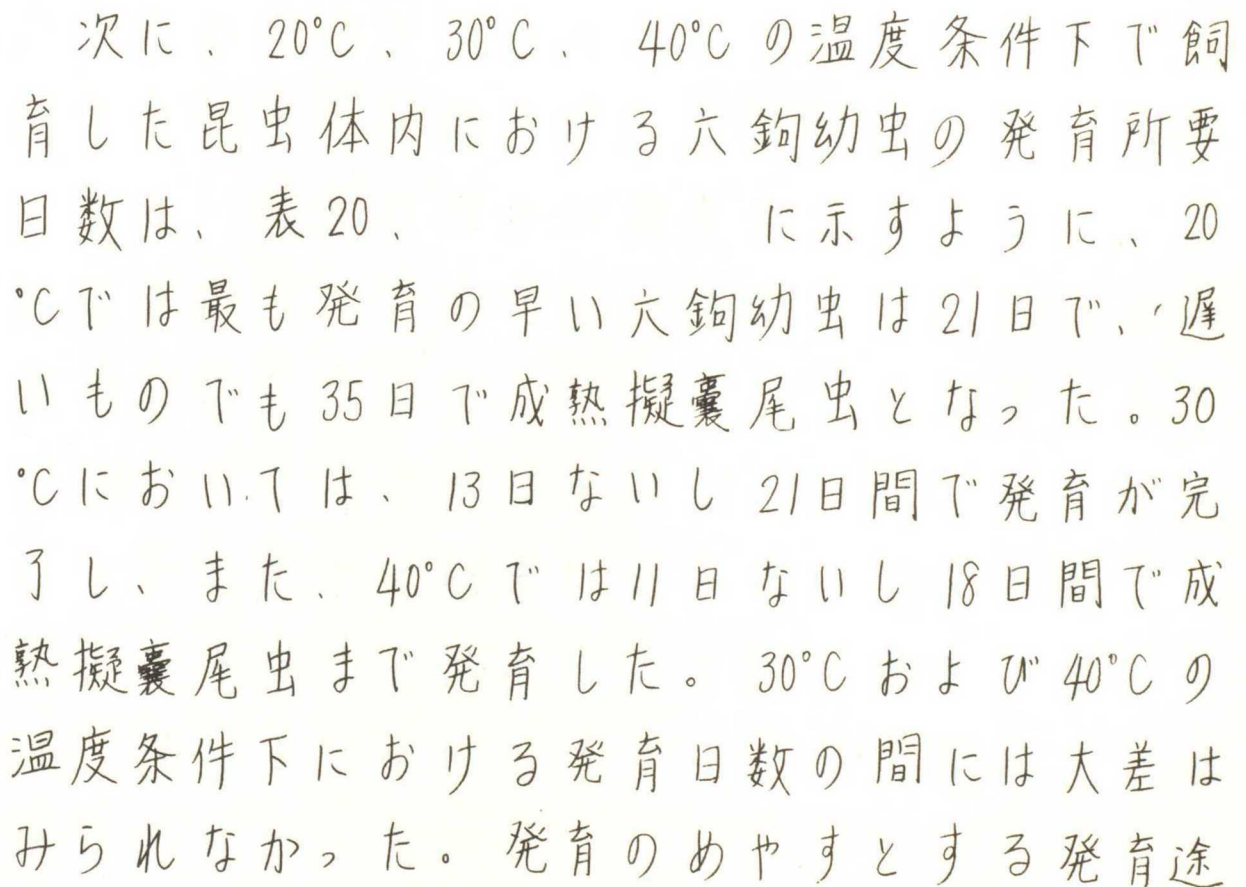 次に、20°C、30°C、40°Cの温度条件下で飼
育した昆虫体内における六鉤幼虫の発育所要
日数は、表20、に示すように、20
°Cでは最も発育の早い六鉤幼虫は21日で、遅
いものでも35日で成熟擬嚢尾虫となった。30
°Cにおいては、13日ないし21日間で発育が完
了し、また、40°Cでは11日ないし18日間で成
熟擬嚢尾虫まで発育した。30°Cおよび40°Cの
温度条件下における発育日数の間には大差は
みられなかった。発育のめやすとする発育途